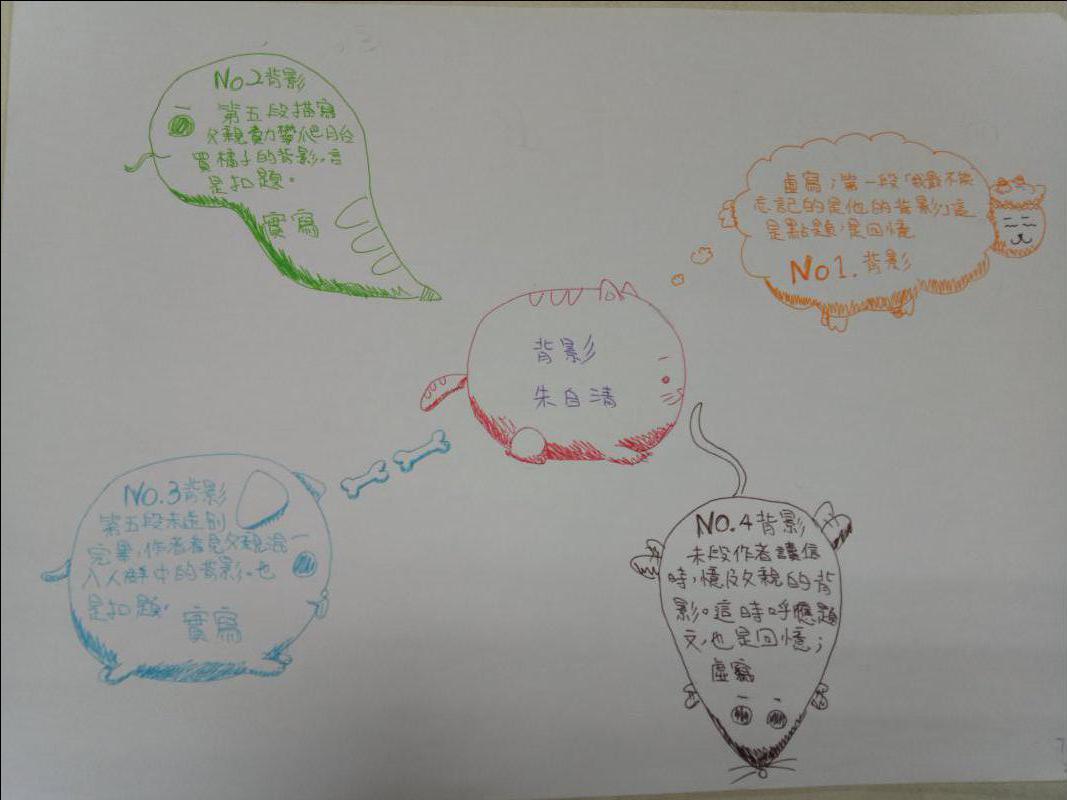 背影
朱自清
虛寫；第一段「我最不能
忘記的是他的背影」這
是點題，是回憶
No1.背影
No2背影
第五段描寫
父親費力攀爬月台
買橘子的背影。言
是扣題。
實寫
No.3背影
第五段末道別
完畢，作者看見父親混
入人群中的背影。也
是扣題。
實寫
No.4背影
末段作者讀信
時，憶及父親的背
影。這時呼應題
文，也是回憶；
虛寫